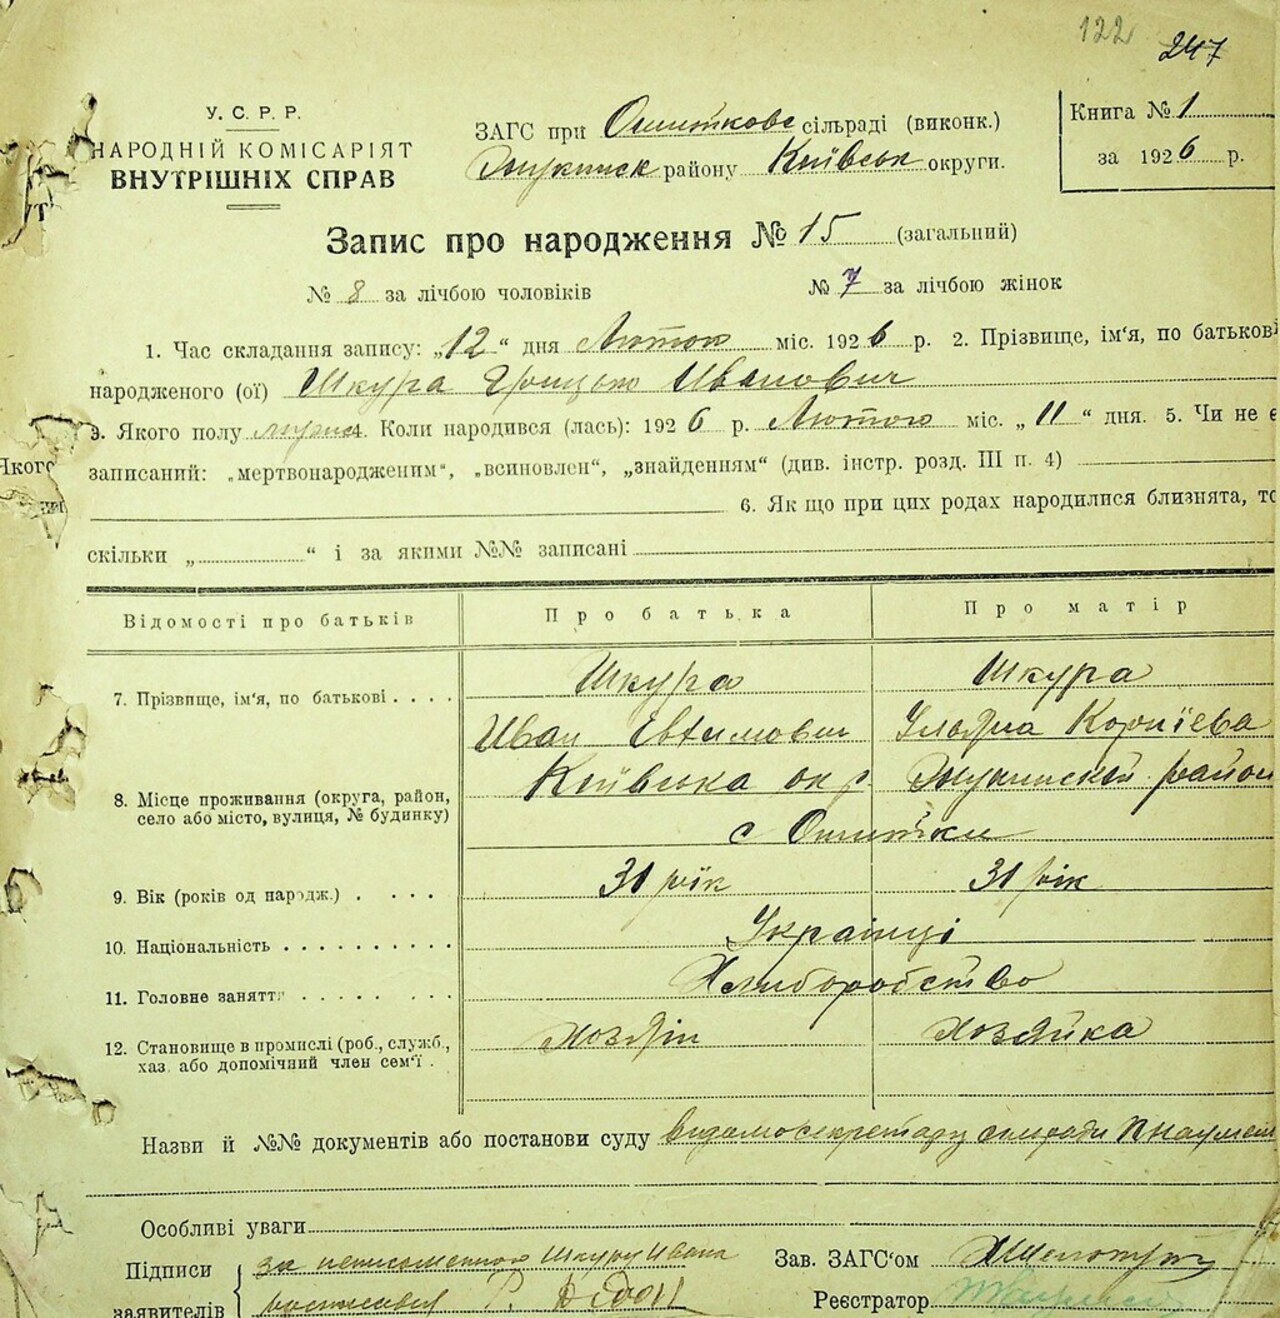 122 247
У. С. Р. Р.
НАРОДНІЙ КОМІСАРІЯТ
ВНУТРІШНІХ СПРАВ
ЗАГС при Ошиткове сільраді (виконк.)
району Київськ округи.
Книга № 1
за 1926 р.
Запис про народження № 15 (загальний)
№ 8 за лічбою чоловіків № 7 за лічбою жінок
1. Час складання запису: „12“ дня Лютого міс. 1926 р. 2. Прізвище, ім'я, по батькові
народженого (ої) Шкура Грицько Иванович
3. Якого полу 4. Коли народився (лась): 1926 р. Лютого міс. „11“ дня. 5. Чи не є
записаний: „мертвонародженим“, „всиновлен“, „знайденням“ (див. інстр. розд. III п. 4)
6. Як що при цих родах народилися близнята, то
скільки „ “ і за якими №№ записані
Відомості про батьків Про батька Про матір
7. Прізвище, ім'я, по батькові Шкура Шкура
Иван Евтимович Уляна Корніева
8. Місце проживання (округа, район, село або місто, вулиця, № будинку) Київська окр. район
с Ошитки
9. Вік (років од народж.) 31 рік 31 рік
10. Національність Українці
11. Головне заняття Хлиборобство
12. Становище в промислі (роб., служб., хаз. або допомічний член сем'ї Хозяін Хозяйка
Назви й №№ документів або постанови суду
Особливі уваги
Підписи
заявителів
за неписьменного Шкуру Ивана
Зав. ЗАГС'ом
Реєстратор
Якого